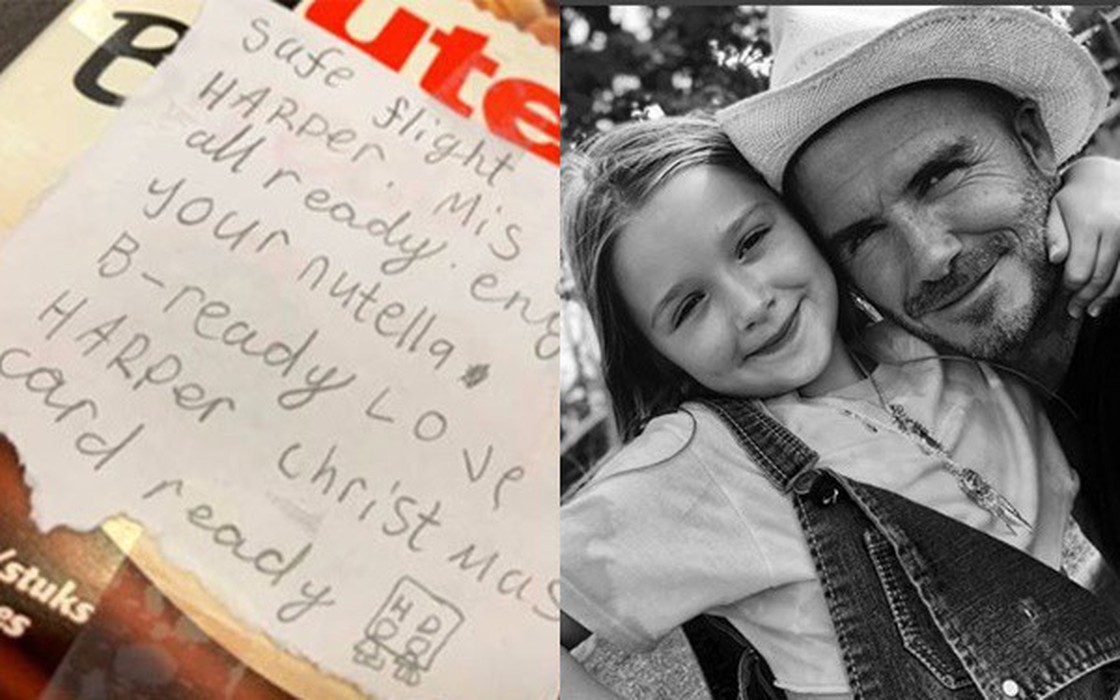 B
ute
Safe flight
HARPer. Mis
all ready.
your nutella
B-ready LOVe
HARPer christmas
card ready
H D
/stuks
es